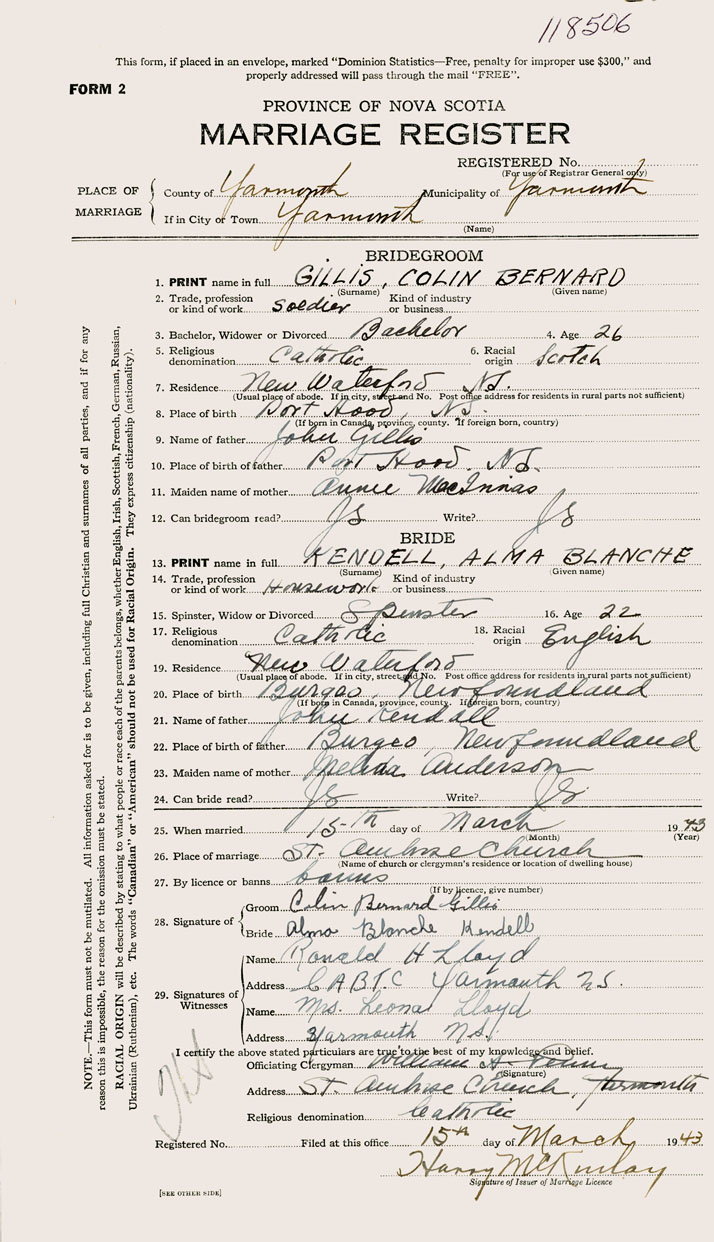 118506
This form, if placed in an envelope, marked "Dominion Statistics—Free, penalty for improper use $300," and
properly addressed will pass through the mail "FREE".
FORM 2
PROVINCE OF NOVA SCOTIA
MARRIAGE REGISTER
REGISTERED No.
(For use of Registrar General only)
PLACE OF MARRIAGE
County of Yarmouth Municipality of Yarmouth
If in City or Town Yarmouth
(Name)
BRIDEGROOM
1. PRINT name in full GILLIS, COLIN BERNARD
(Surname) (Given name)
2. Trade, profession or kind of work Soldier Kind of industry or business
3. Bachelor, Widower or Divorced Bachelor 4. Age 26
5. Religious denomination Catholic 6. Racial origin Scotch
7. Residence New Waterford N.S.
(Usual place of abode. If in city, street and No. Post office address for residents in rural parts not sufficient)
8. Place of birth Port Hood, N.S.
(If born in Canada, province, county. If foreign born, country)
9. Name of father John Gillis
10. Place of birth of father Port Hood. N.S.
11. Maiden name of mother Annie MacInnas
12. Can bridegroom read? Write?
BRIDE
13. PRINT name in full KENDELL, ALMA BLANCHE
(Surname) (Given name)
14. Trade, profession or kind of work Housework Kind of industry or business
15. Spinster, Widow or Divorced Spinster 16. Age 22
17. Religious denomination Catholic 18. Racial origin English
19. Residence New Waterford
(Usual place of abode. If in city, street and No. Post office address for residents in rural parts not sufficient)
20. Place of birth Burgeo, Newfoundland
(If born in Canada, province, county. If foreign born, country)
21. Name of father John Kendall
22. Place of birth of father Burgeo, Newfoundland
23. Maiden name of mother Melina Anderson
24. Can bride read? Write?
25. When married 15th day of March 1943
(Month) (Year)
26. Place of marriage St. Ambrose Church
(Name of church or clergyman's residence or location of dwelling house)
27. By licence or banns banns
(If by licence, give number)
28. Signature of
Groom Colin Bernard Gillis
Bride Alma Blanche Kendell
29. Signatures of Witnesses
Name Ronald H Lloyd
Address C A B T C Yarmouth N.S.
Name Mrs. Leona Lloyd
Address Yarmouth N.S.
I certify the above stated particulars are true to the best of my knowledge and belief.
Officiating Clergyman William A.
(Signature)
Address St. Ambrose Church, Yarmouth
Religious denomination Catholic
Registered No. Filed at this office 15th day of March 1943
Harry McKinlay
Signature of Issuer of Marriage Licence
[SEE OTHER SIDE]
NOTE.—This form must not be mutilated. All information asked for is to be given, including full Christian and surnames of all parties, and if for any
reason this is impossible, the reason for the omission must be stated.
RACIAL ORIGIN will be described by stating to what people or race each of the parents belongs, whether English, Irish, Scottish, French, German, Russian,
Ukrainian (Ruthenian), etc. The words "Canadian" or "American" should not be used for Racial Origin. They express citizenship (nationality).